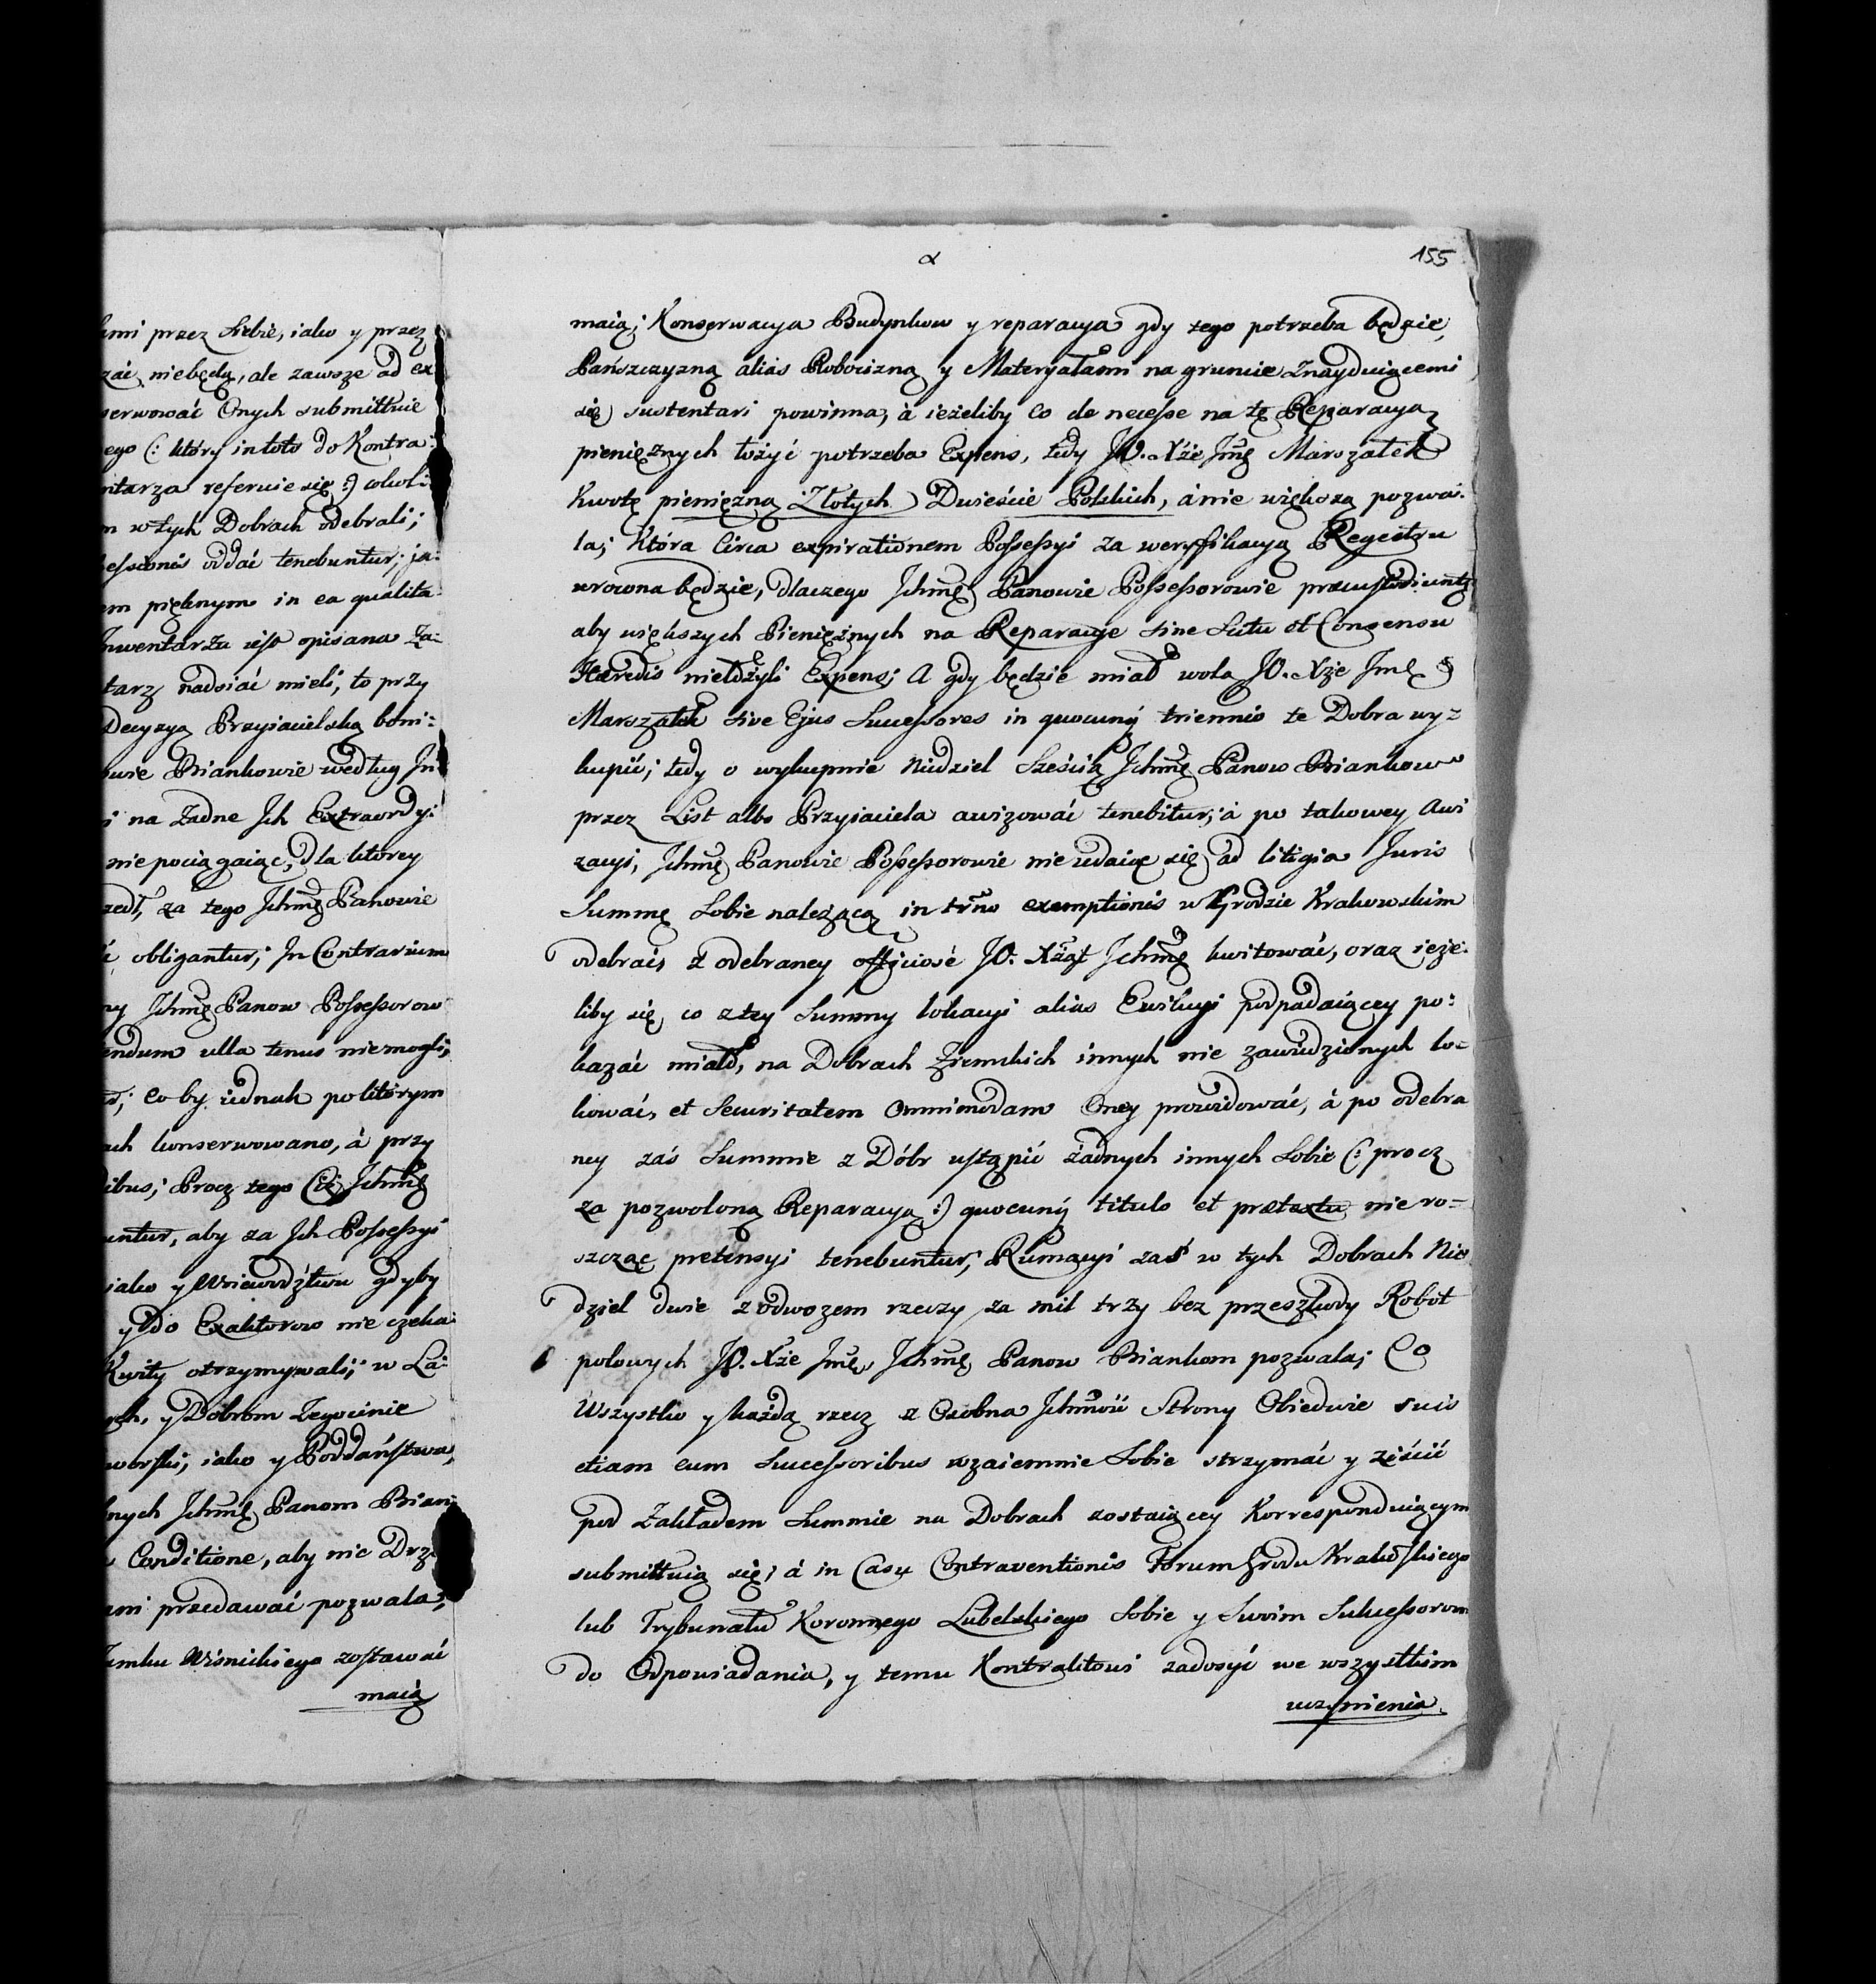 ami przez Siebie, iako y przez
zać niebędą, ale zawsze ad ex
serwować Onych submittuie
ego (: który in toto do Kontra:
ntarza referuie się :) cokol:
m w tych Dobrach odebrali;
essionis oddać tenebuntur; ja:
em pięknym in ea qualita
Inwentarzu iest opisana Za:
tarz nadsiać mieli, to przy
Decyzyą Przyiacielską boni=
owie Biankowie według In
i na Zadne Ich Extraordy:
nie pociągaiąc, dla ktorey
szedł, za tego Ichmę Panowie
ć obligantur; In Contrarium
ny Ichmę Panow Possessorow
endum ulla tenus niemogli,
co by iednak po litorym
ach konserwowano, á przy
ibus; Procz tego Ciż Ichmę
untur, aby za Ich Possessyi
iako y Woiewodztwu gdyby
y do Exaktorow nie czeka:
Kwity otrzymywali; w La:
ych, y Dobrom Zegocinie
worski, iako y Poddaństwa,
nych Ichmę Panom Bian:
Conditione, aby nic Drz
ami przedawać pozwala;
Zamku Wisnickiego zostawać
maią
α
155
maią; Konserwacya Budynkow y reparacya gdy tego potrzeba będzie,
Pańszczyzną alias Robocizną y Materyałami na gruncie znayduiącemi
się sustentari powinna, á ieżeliby co de necesse na tę Reparacyą
pieniężnych łożyć potrzeba Expens, tedy JO. Xże Jmę Marszałek
Kwotę pieniężną Złotych Dwieście Polskich, á nie większą pozwa:
la; Która Circa expirationem Possessyi za weryfikacyą Regestru
wrocona będzie, dlaczego Ichmę Panowie Possessorowie praecustodiuntr
aby większych Pieniężnych na Reparacye sine Scitu et Consensu
Haeredis niełożyli Expens; A gdy będzie miał wola JO. Xże Jmę
Marszałek sive Ejus Successores in quocunq triennio te Dobra wy=
kupić; tedy o wykupnie Niedziel Sześcią Ichmę Panow Biankow
przez List albo Przyiaciela awizować tenebitur; á po takowey Awi
zacyi, Ichmę Panowie Possessorowie nie udaiąc się ad litigia Juris
Summę Sobie należącą in trno exemptionis w Grodzie Krakowskim
odebrać, z odebraney offiiciose JO. Xżąt Ichmę kwitować, oraz ieże:
liby się co z tey Summy lokacyi alias Ewikcyi podpadaiącey po:
kazać miało, na Dobrach Ziemskich innych nie zawiedzionych lo=
kować, et Securitatem Omnimodam Oney prowidować, á po odebra
ney zaś Summie z Dóbr ustąpić żadnych innych Sobie (: procz
za pozwoloną Reparacyą :) quocunq titulo et praetextu nie ro=
szcząc pretensyi tenebuntur; Rumacyi zaś w tych Dobrach Nie
dziel dwie z odwozem rzeczy za mil trzy bez przeszkody Robot
polowych JO. Xże Jmę Ichmę Panow Biankom pozwala; Co
Wszystko y każdą rzecz z Osobna Ichmow Strony Obiedwie suis
etiam cum Successoribus wzaiemnie Sobie strzymać y ziścić
pod Zakładem Summie na Dobrach zostaiącey Korresponduiącym
submittuią się; á in Casu Contraventionis Forum Grodu Krakowskiego
lub Trybunału Koronnego Lubelskiego Sobie y Swoim Sukcessorom
do Odpowiadania, y temu Kontraktowi zadosyć we wszystkim
uczynienia.